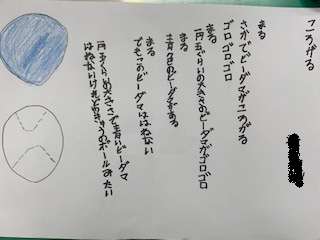 ころがる
まる
さかでビーダマがころがる
ゴロゴロゴロ
まる
一円玉くらいの大きさのビーダマがゴロゴロ
まる
青色のビーダマがある
まる
でもこのビーダマははねない
一円玉くらいの大きさで青いビーダマ
はねないけれどやきゅうのボールみたい